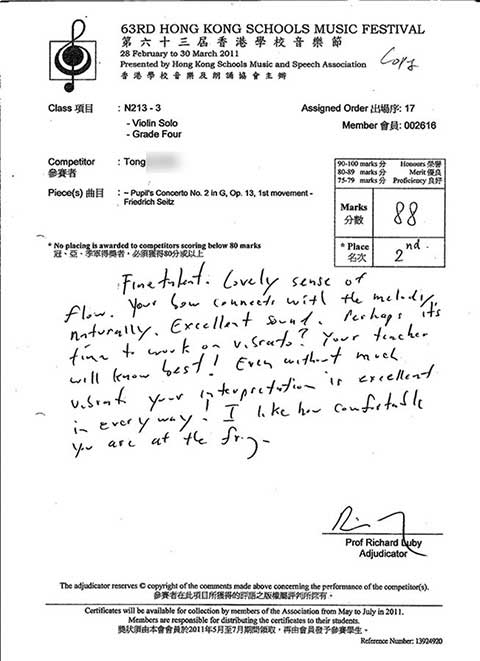 63RD HONG KONG SCHOOLS MUSIC FESTIVAL
第六十三屆香港學校音樂節
28 February to 30 March 2011
Presented by Hong Kong Schools Music and Speech Association
香港學校音樂及朗誦協會主辦
Copy
Class 項目 : N213 - 3
- Violin Solo
- Grade Four
Assigned Order 出場序: 17
Member 會員: 002616
Competitor : Tong
參賽者
Piece(s) 曲目 : ~ Pupil's Concerto No. 2 in G, Op. 13, 1st movement -
Friedrich Seitz
90-100 marks 分 Honours 榮譽
80-89 marks 分 Merit 優良
75-79 marks 分 Proficiency 良好
Marks 分數 88
* Place 名次 2nd
* No placing is awarded to competitors scoring below 80 marks
冠、亞、季軍得獎者，必須獲得80分或以上
Fine talent. Lovely sense of
flow. Your bow connects with the melody,
naturally. Excellent sound. Perhaps its
time to work on vibrato? Your teacher
will know best! Even without much
vibrato your interpretation is excellent
in every way! I like how comfortable
you are at the frog.
Prof Richard Luby
Adjudicator
The adjudicator reserves © copyright of the comments made above concerning the performance of the competitor(s).
參賽者在此項目所獲得的評語之版權屬評判所擁有。
Certificates will be available for collection by members of the Association from May to July in 2011.
Members are responsible for distributing the certificates to their students.
獎狀須由本會會員於2011年5月至7月期間領取，再由會員發予參賽學生。
Reference Number: 13924920